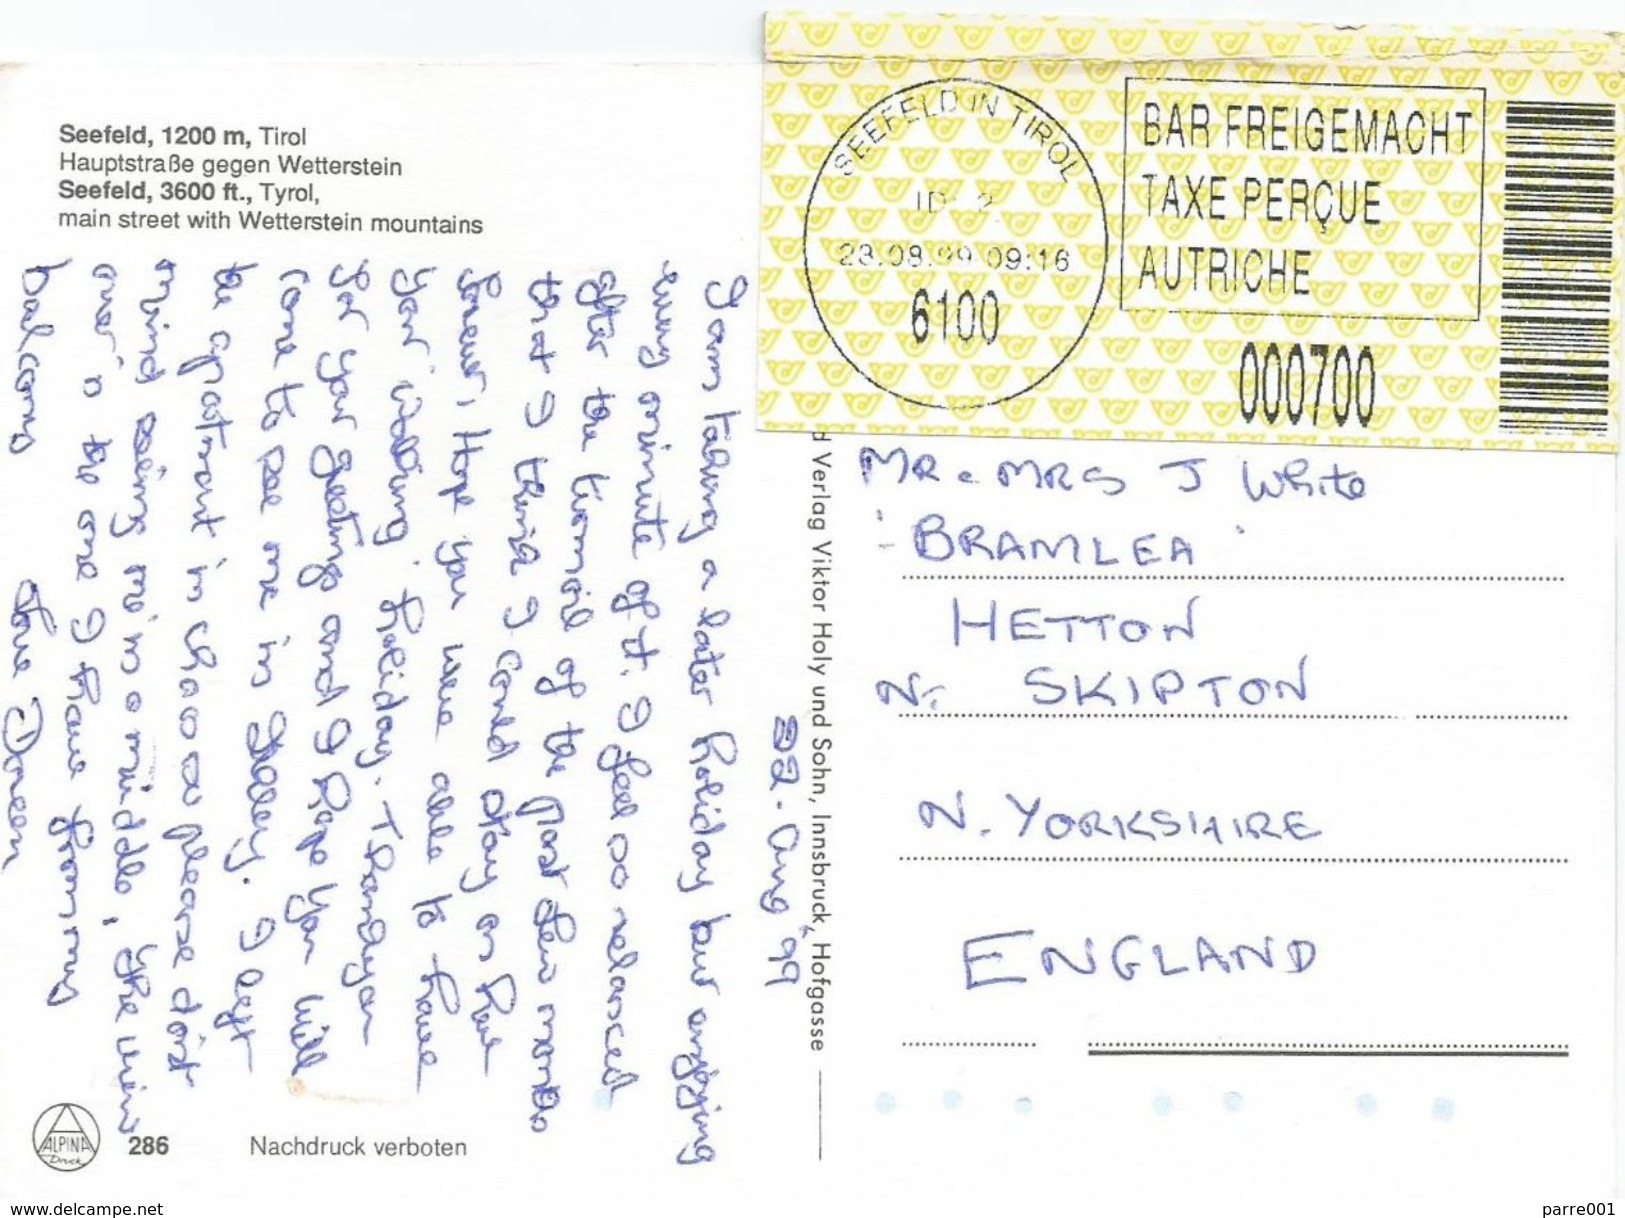 Seefeld, 1200 m, Tirol
Hauptstraße gegen Wetterstein
Seefeld, 3600 ft., Tyrol,
main street with Wetterstein mountains
22. Aug '99
I am taking a later holiday but enjoying
every minute of it. I feel so relaxed
after the turmoil of the past few months
that I think I could stay on here
forever. Hope you were able to have
your walking holiday. Thankyou
for your greetings and I hope you will
come to see me in I left
the apartment in chaos so please don't
mind seeing me in a middle, the view
over is the one I have from my
balcony Love Doreen
ALPINA
Druck
286
Nachdruck verboten
d Verlag Viktor Holy und Sohn, Innsbruck, Hofgasse
SEEFELD IN TIROL
ID: 2
23.08.99 09:16
6100
BAR FREIGEMACHT
TAXE PERÇUE
AUTRICHE
000700
MR & MRS J White
'BRAMLEA'
HETTON
Nr. SKIPTON
N. YORKSHIRE
ENGLAND
www.delcampe.net
parre001